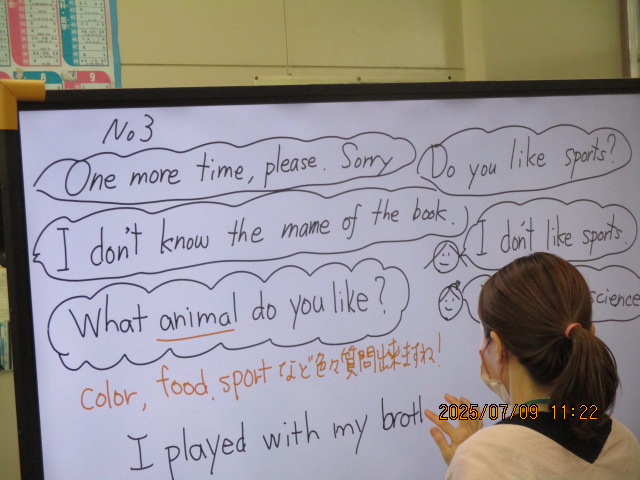 No 3
One more time, please. Sorry
Do you like sports?
I don't know the mame of the book.
I don't like sports.
science
What animal do you like?
color, food, sport など色々質問出来ますね!
I played with my brotl
2025/07/09 11:22
8
9